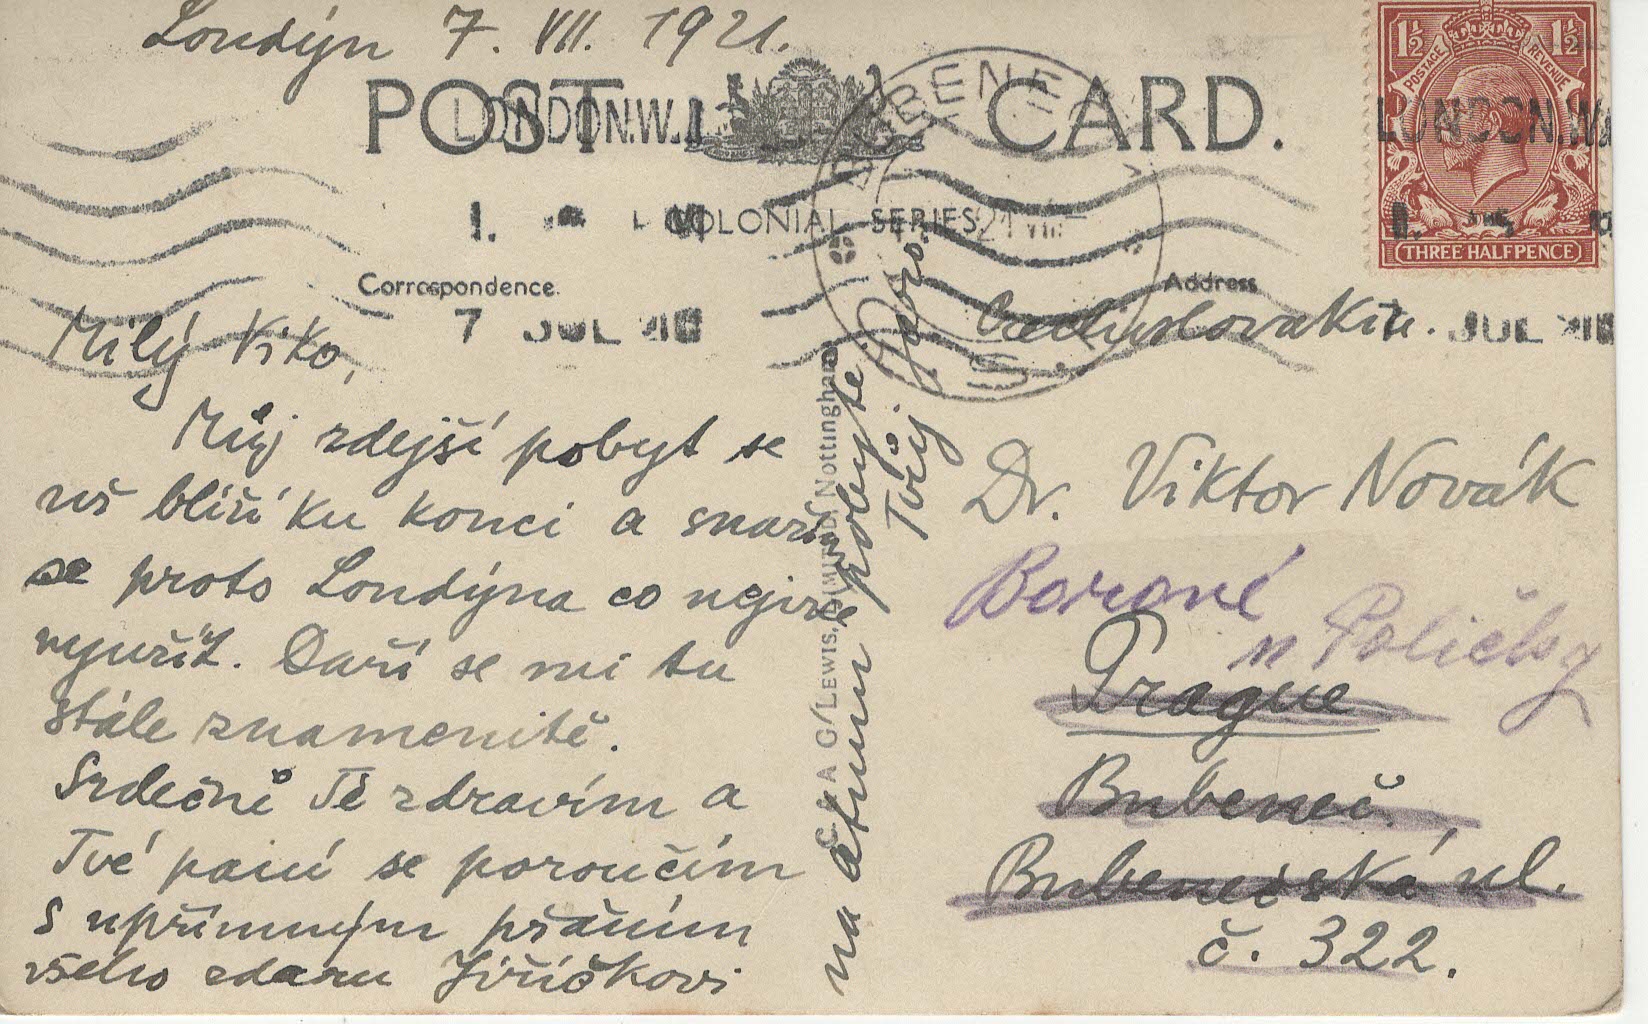 Londýn 7. VII. 1921.
POST CARD.
LONDON.W.1
LONDON.W.1
BUBENEČ
COLONIAL SERIES
21 VII
1½ 1½
POSTAGE REVENUE
THREE HALFPENCE
Correspondence.
Address
7 JUL 21
JUL 21
Milý Viko,
Můj zdejší pobyt se
už blíží ku konci a snažím
se proto Londýna co nejvíce
využít. Daří se mi tu
stále znamenitě.
Srdečně Tě zdravím a
Tvé paní se poroučím
s upřímným přáním
všeho zdaru Jiříčkovi
na pobyte
Tvůj
C. & A. G. Lewis, Limited, Nottingham.
Dr. Viktor Novák
Borové
u Poličky
Prague
Bubeneč.
Bubenečská ul.
č. 322.